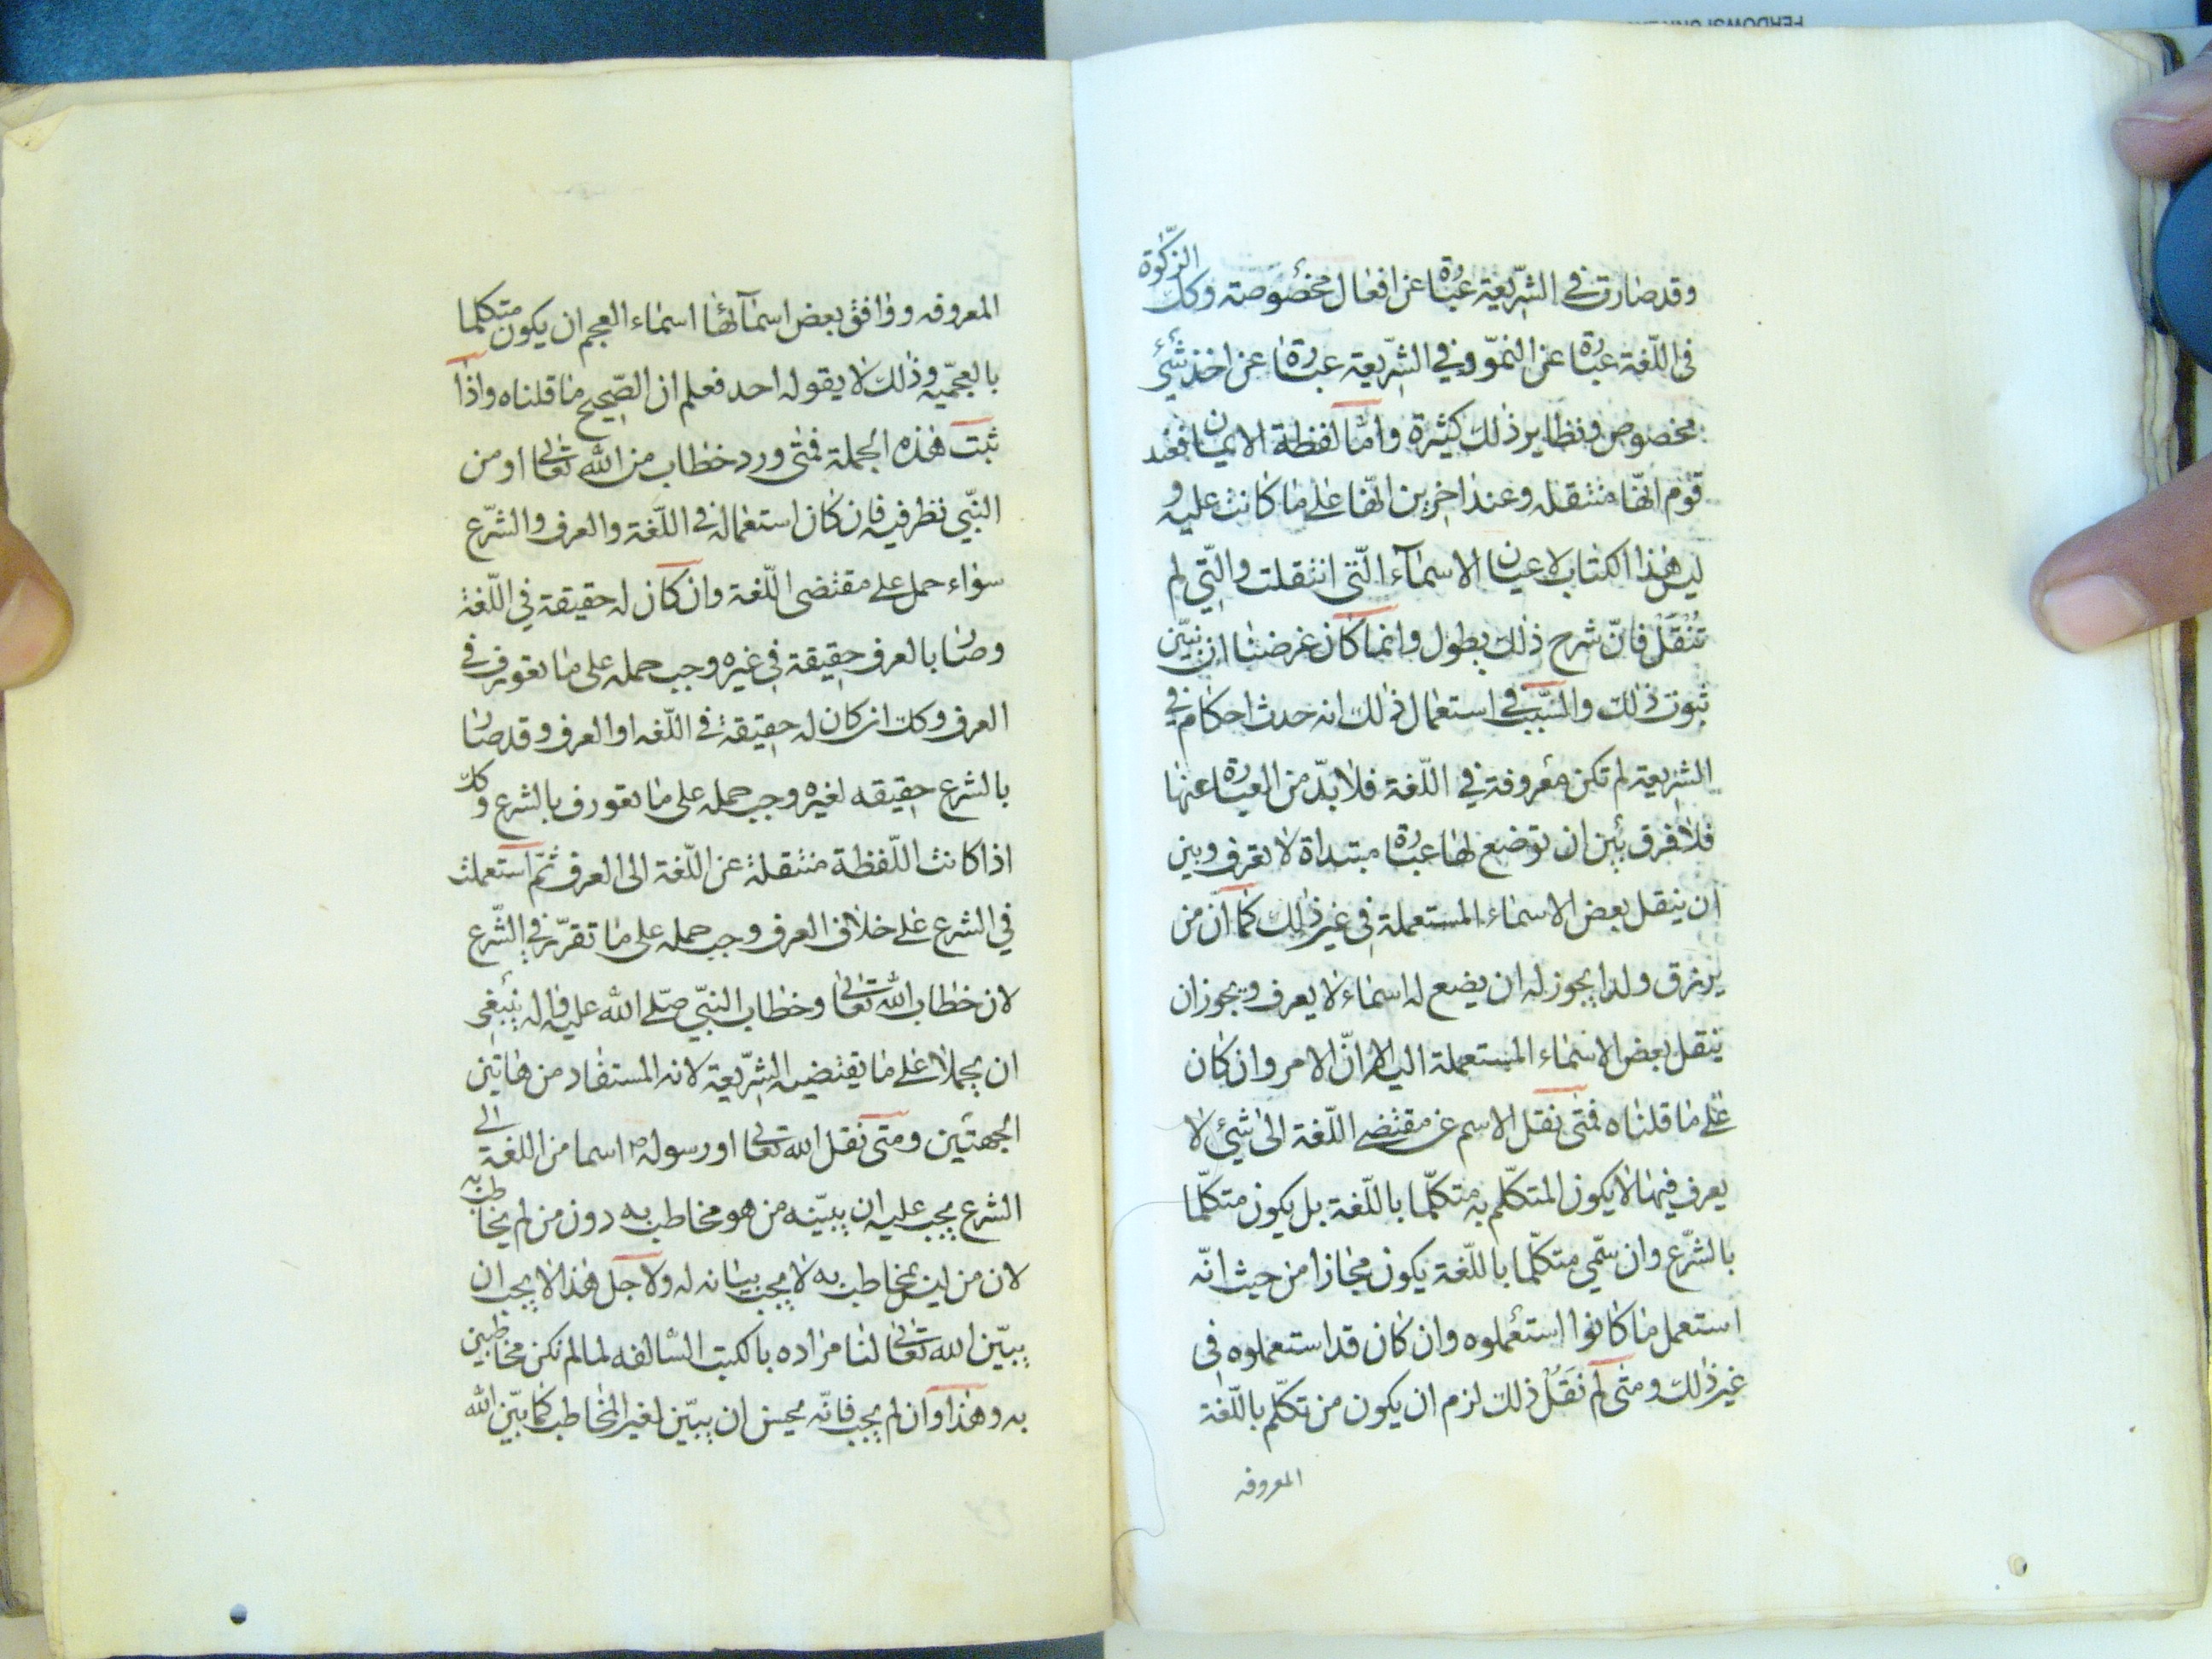 وقد صارت في الشّريعة عبارة عن افعال مخصوصة وكك الزّكوة
في اللّغة عبارة عن النموّ وفي الشّريعة عبارة عن اخذ شئ
مخصوص ونظاير ذلك كثيرة وامّا لفظة الايمان فعند
قوم انّها منتقله وعند اخرين انّها على ما كانت عليه و
ليس هذا الكتاب لاعيان الاسمآء الّتى انتقلت والّتي لم
تنتقل فانّ شرح ذلك يطول وانما كان غرضنا ان نبيّن
ثبوت ذلك والسّبب في استعمال ذلك انه حدث احكام في
الشريعة لم تكن معروفة في اللّغة فلا بدّ من العبارة عنها
فلا فرق بين ان توضع لها عبارة مبتداة لا تعرف وبين
ان ينقل بعض الاسماء المستعملة في غير ذلك كما انّ من
يرزق ولدا يجوز له ان يضع له اسماء لا يعرف ويجوز ان
ينقل بعض الاسماء المستعملة اليه الا انّ الامر وان كان
على ما قلناه فمتى نقل الاسم عن مقتضى اللّغة الى شئ لا
يعرف فيها لا يكون المتكلّم به متكلّما باللّغة بل يكون متكلّما
بالشّرع وان سمّي متكلّما باللّغة يكون مجازا من حيث انّه
استعمل ما كانوا استعملوه وان كان قد استعملوه في
غير ذلك ومتى لم نقل ذلك لزم ان يكون من تكلّم باللّغة
المعروفه
المعروفه ووافق بعض اسمآئها اسماء العجم ان يكون متكلما
بالعجميّه وذلك لا يقوله احد فعلم ان الصّحيح ما قلناه واذا
ثبت هذه الجملة فمتى ورد خطاب من الله تعالى او من
النّبي نظر فيه فان كان استعماله في اللّغة والعرف والشّرع
سواء حمل على مقتضى اللّغة وان كان له حقيقة في اللّغة
وصار بالعرف حقيقة في غيره وجب حمله على ما تعورف في
العرف وكك ان كان له حقيقة في اللّغه او العرف وقد صار
بالشرع حقيقه لغيره وجب حمله على ما تعورف بالشرع وكك
اذا كانت اللّفظة منتقلة عن اللّغة الى العرف ثمّ استعملت
في الشرع على خلاف العرف وجب حمله على ما تقرّر في الشّرع
لان خطاب الله تعالى وخطاب النبّي صلّى الله عليه واله ينبغي
ان يحملا على ما يقتضيه الشّريعة لانه المستفاد من هاتين
الجهتين ومتى نقل الله تعالى او رسوله ص اسما من اللغة الى
الشرع يجب عليه ان يبيّنه من هو مخاطب به دون من لم يخاطب به
لان من ليس بمخاطب به لا يجب بيانه له ولاجل هذا لا يجب ان
يبيّن الله تعالى لنا مراده بالكتب السّالفه لما لم نكن مخاطبين
به وهذا وان لم يجب فانّه يحسن ان يبيّن لغير المخاطب كما بيّن الله